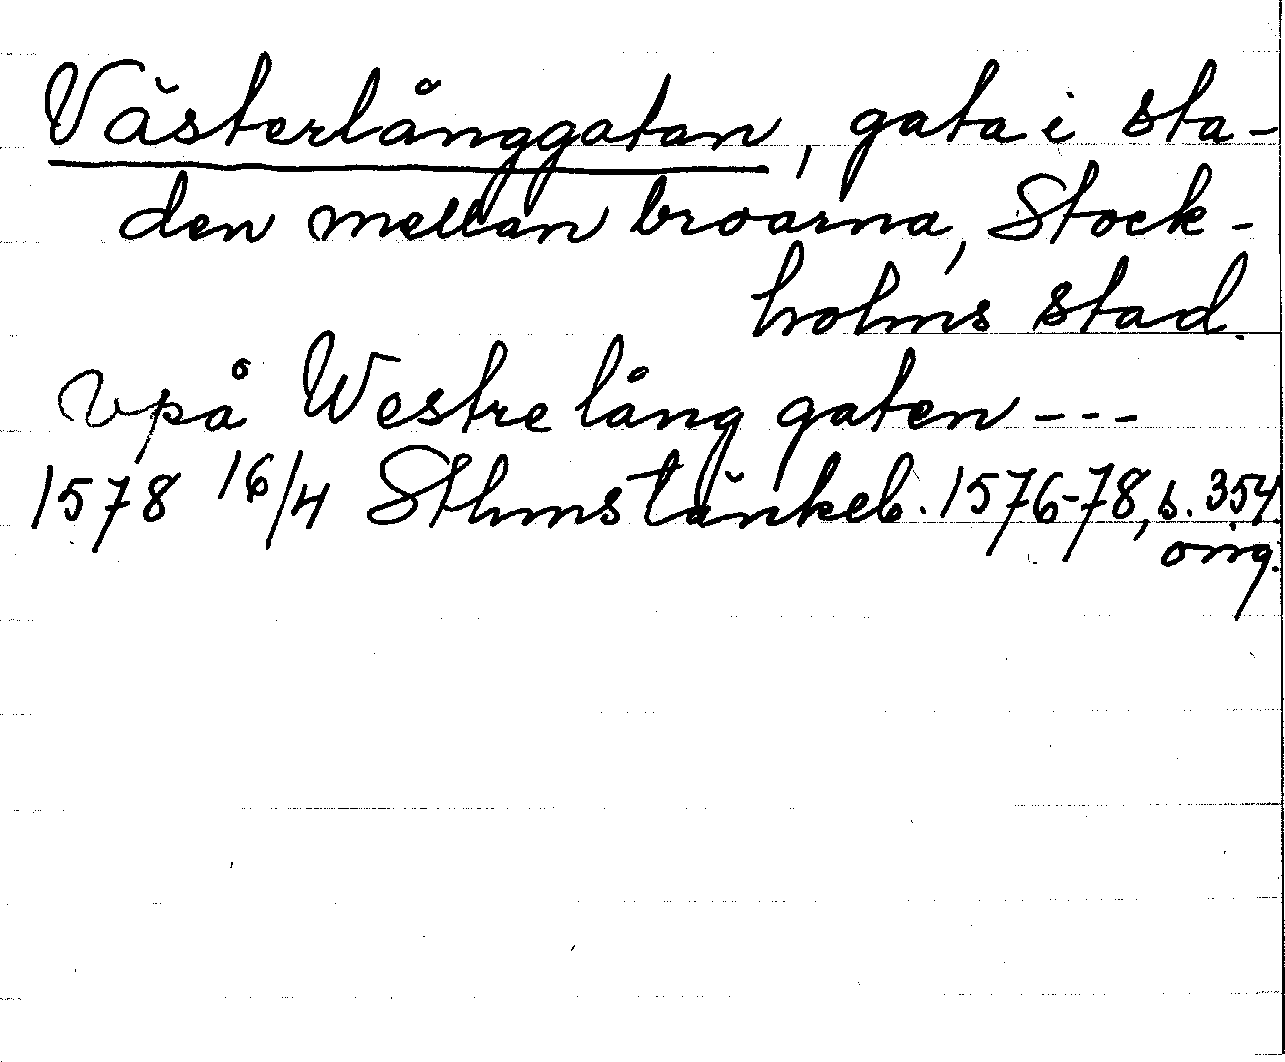 Västerlånggatan, gata i sta-
den mellan broarna, Stock-
holms stad.
vpå Westre lång gaten ---
1578 16/4 Sthms tänkeb. 1576-78, s. 354
orig.